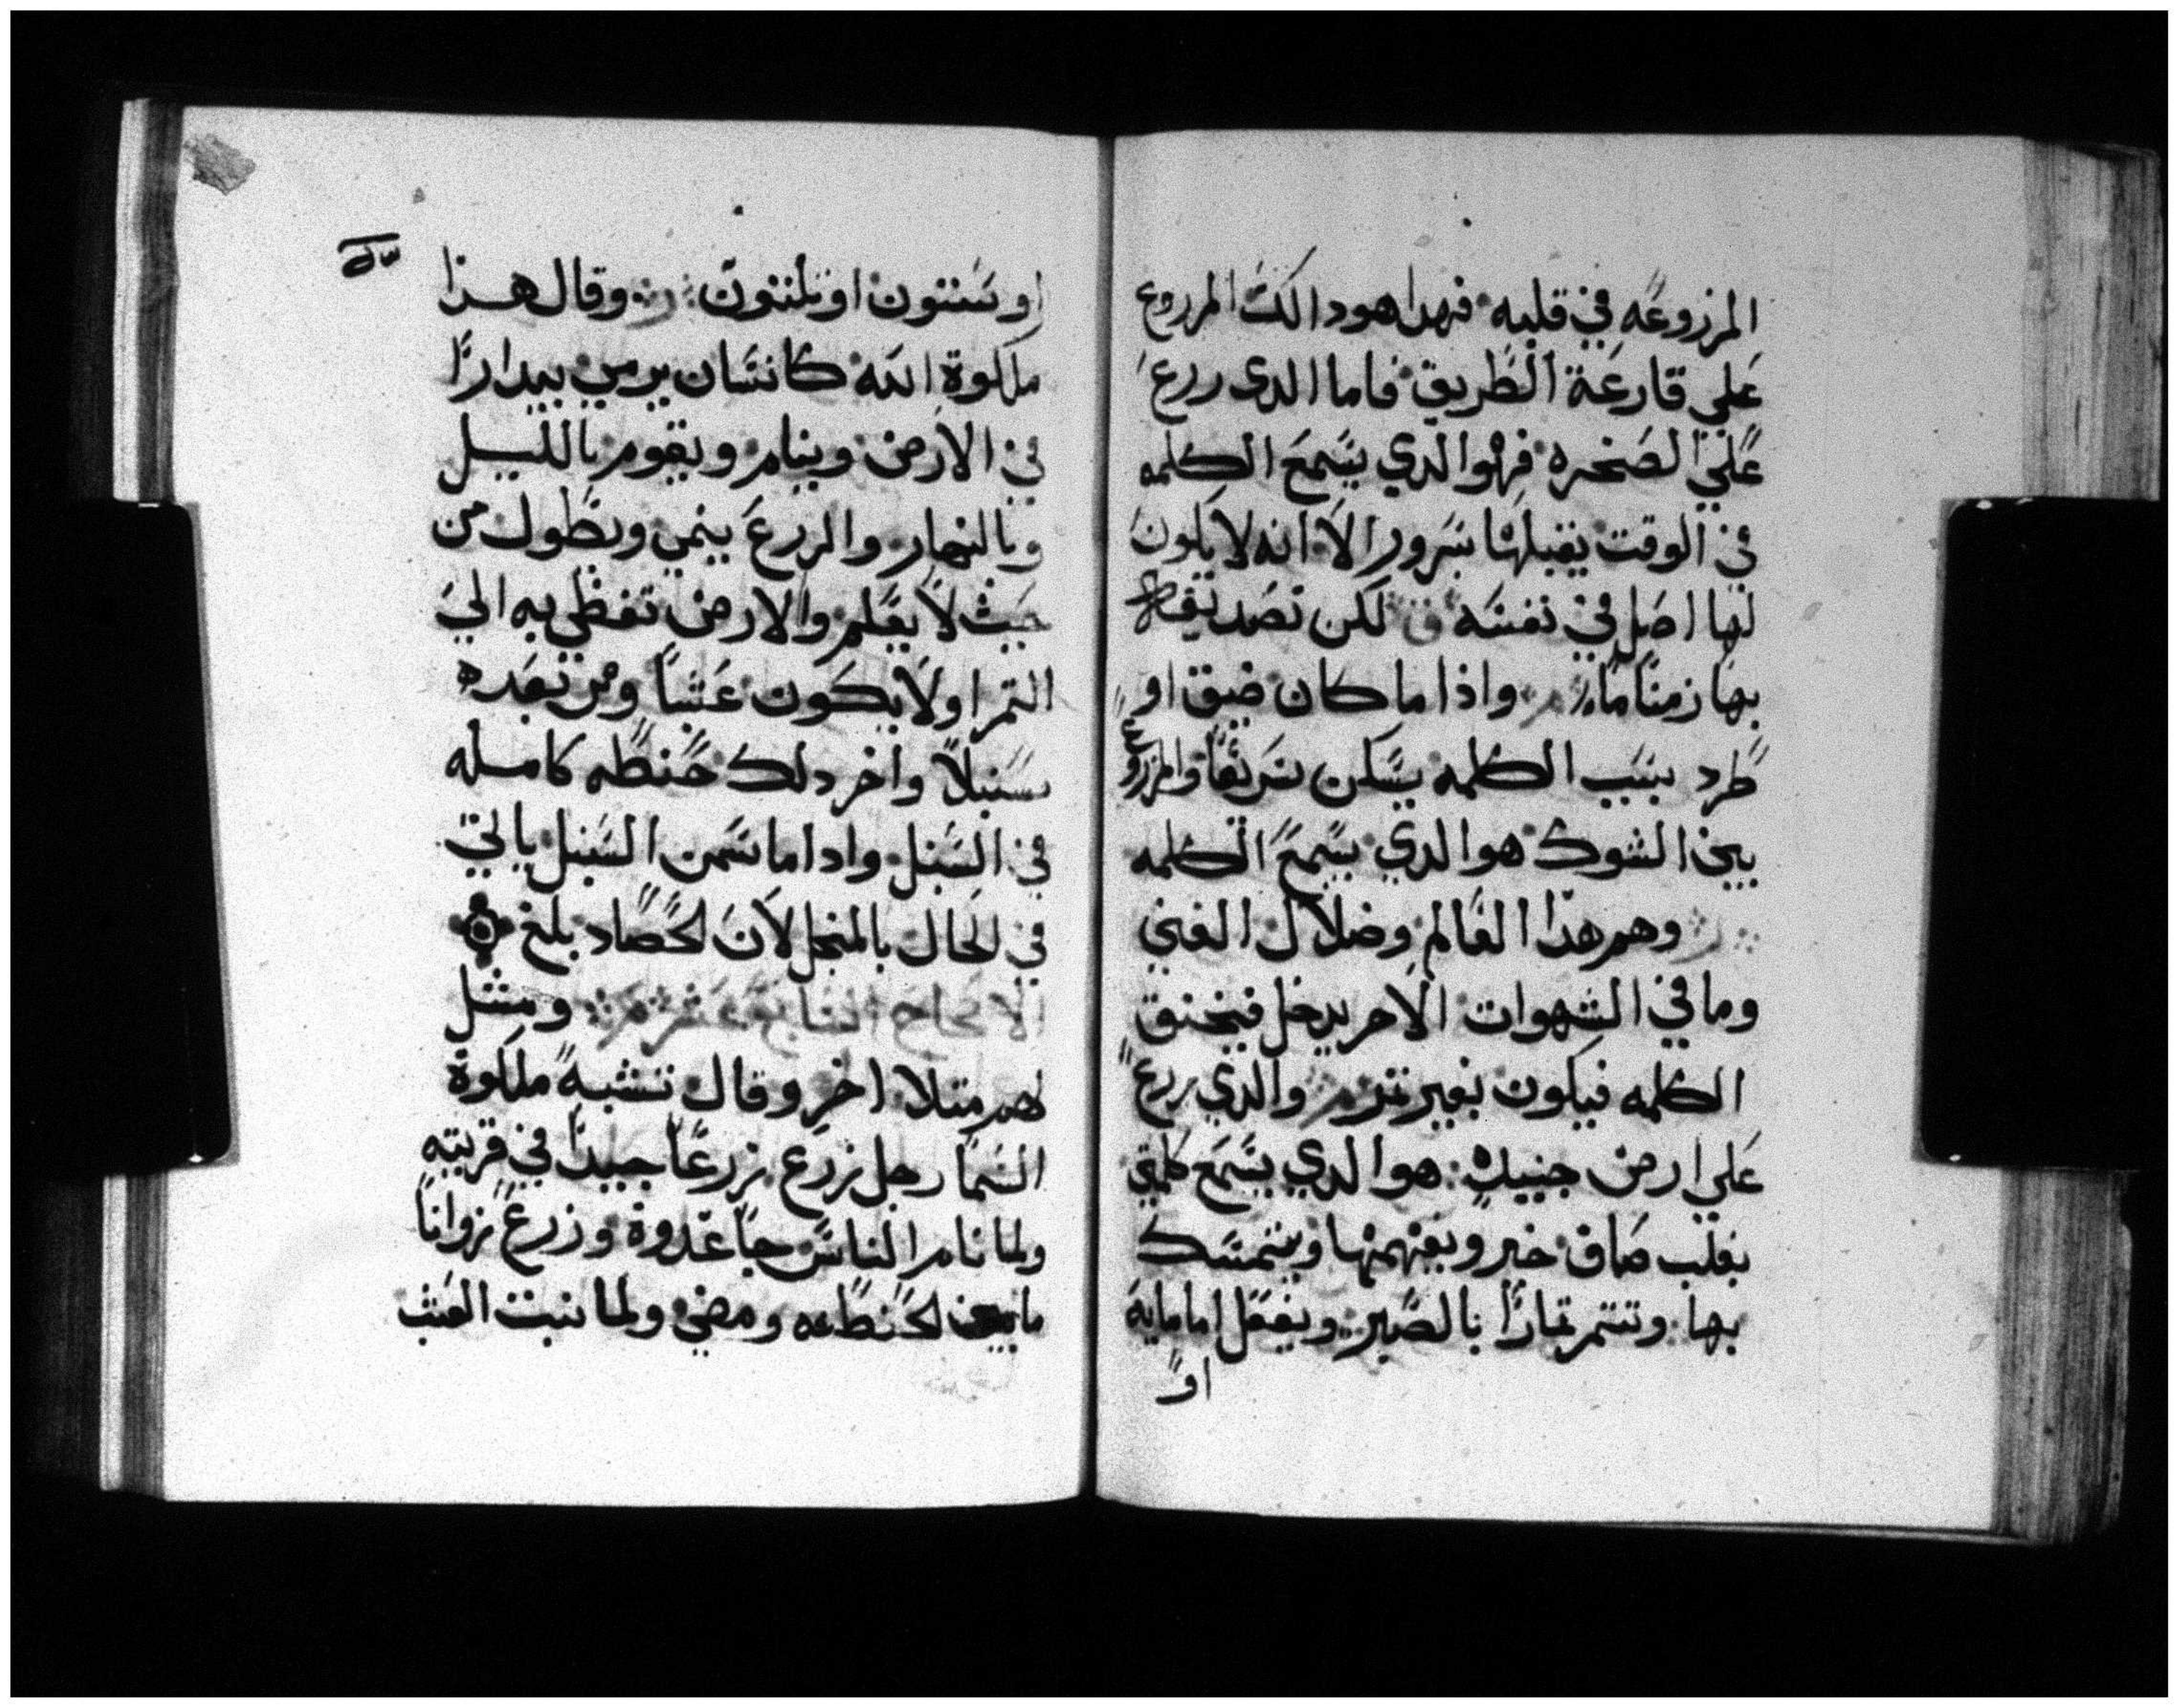 المزروعه في قلبه فهدا هو دالك المرروع
علي قارعة الطريق فاما الدى ررع
علي الصخره فهو الدي يسمع الكلمه
في الوقت يقبلها بسرور الا انه لا يكون
لها اصل في نفسه لكن تصديقه
بها زمنا ما واذا ما كان ضيق او
طرد بسبب الكلمه يسكن سريعا والمزروع
بين الشوك هو الدي يسمع الكلمه
وهم هذا العالم وضلال الغني
وما في الشهوات الاخر يدخل فيخنق
الكلمه فيكون بغير تمر والدي ررع
علي ارض جيده هو الدي يسمع كلمتي
بقلب صاف خير ويفهمها ويتمسك
بها وتتمر تمارا بالصبر ويفعل اما مايه
او
او ستون او تلتون وقال هذا
ملكوة الله كانسان يرمي بيدارا
في الارض وينام ويقوم بالليل
وبالنهار والزرع ينمي ويطول من
حيث لا يعلم والارض تفظي به الي
التمر اولا يكون عشبا ومن بعده
سنبلا واخر دلك حنطه كامله
في السنبل وادا ما سمن السنبل ياتي
في الحال بالمنجل لان الحصاد بلغ
الاصحاح السابع عشر ومثل
لهم متلا اخر وقال تشبه ملكوة
السما رجل زرع زرعا جيدا في قريته
ولما نام الناس جا عدوه وزرع زوانا
ما بين الحنطه ومضي ولما نبت العشب